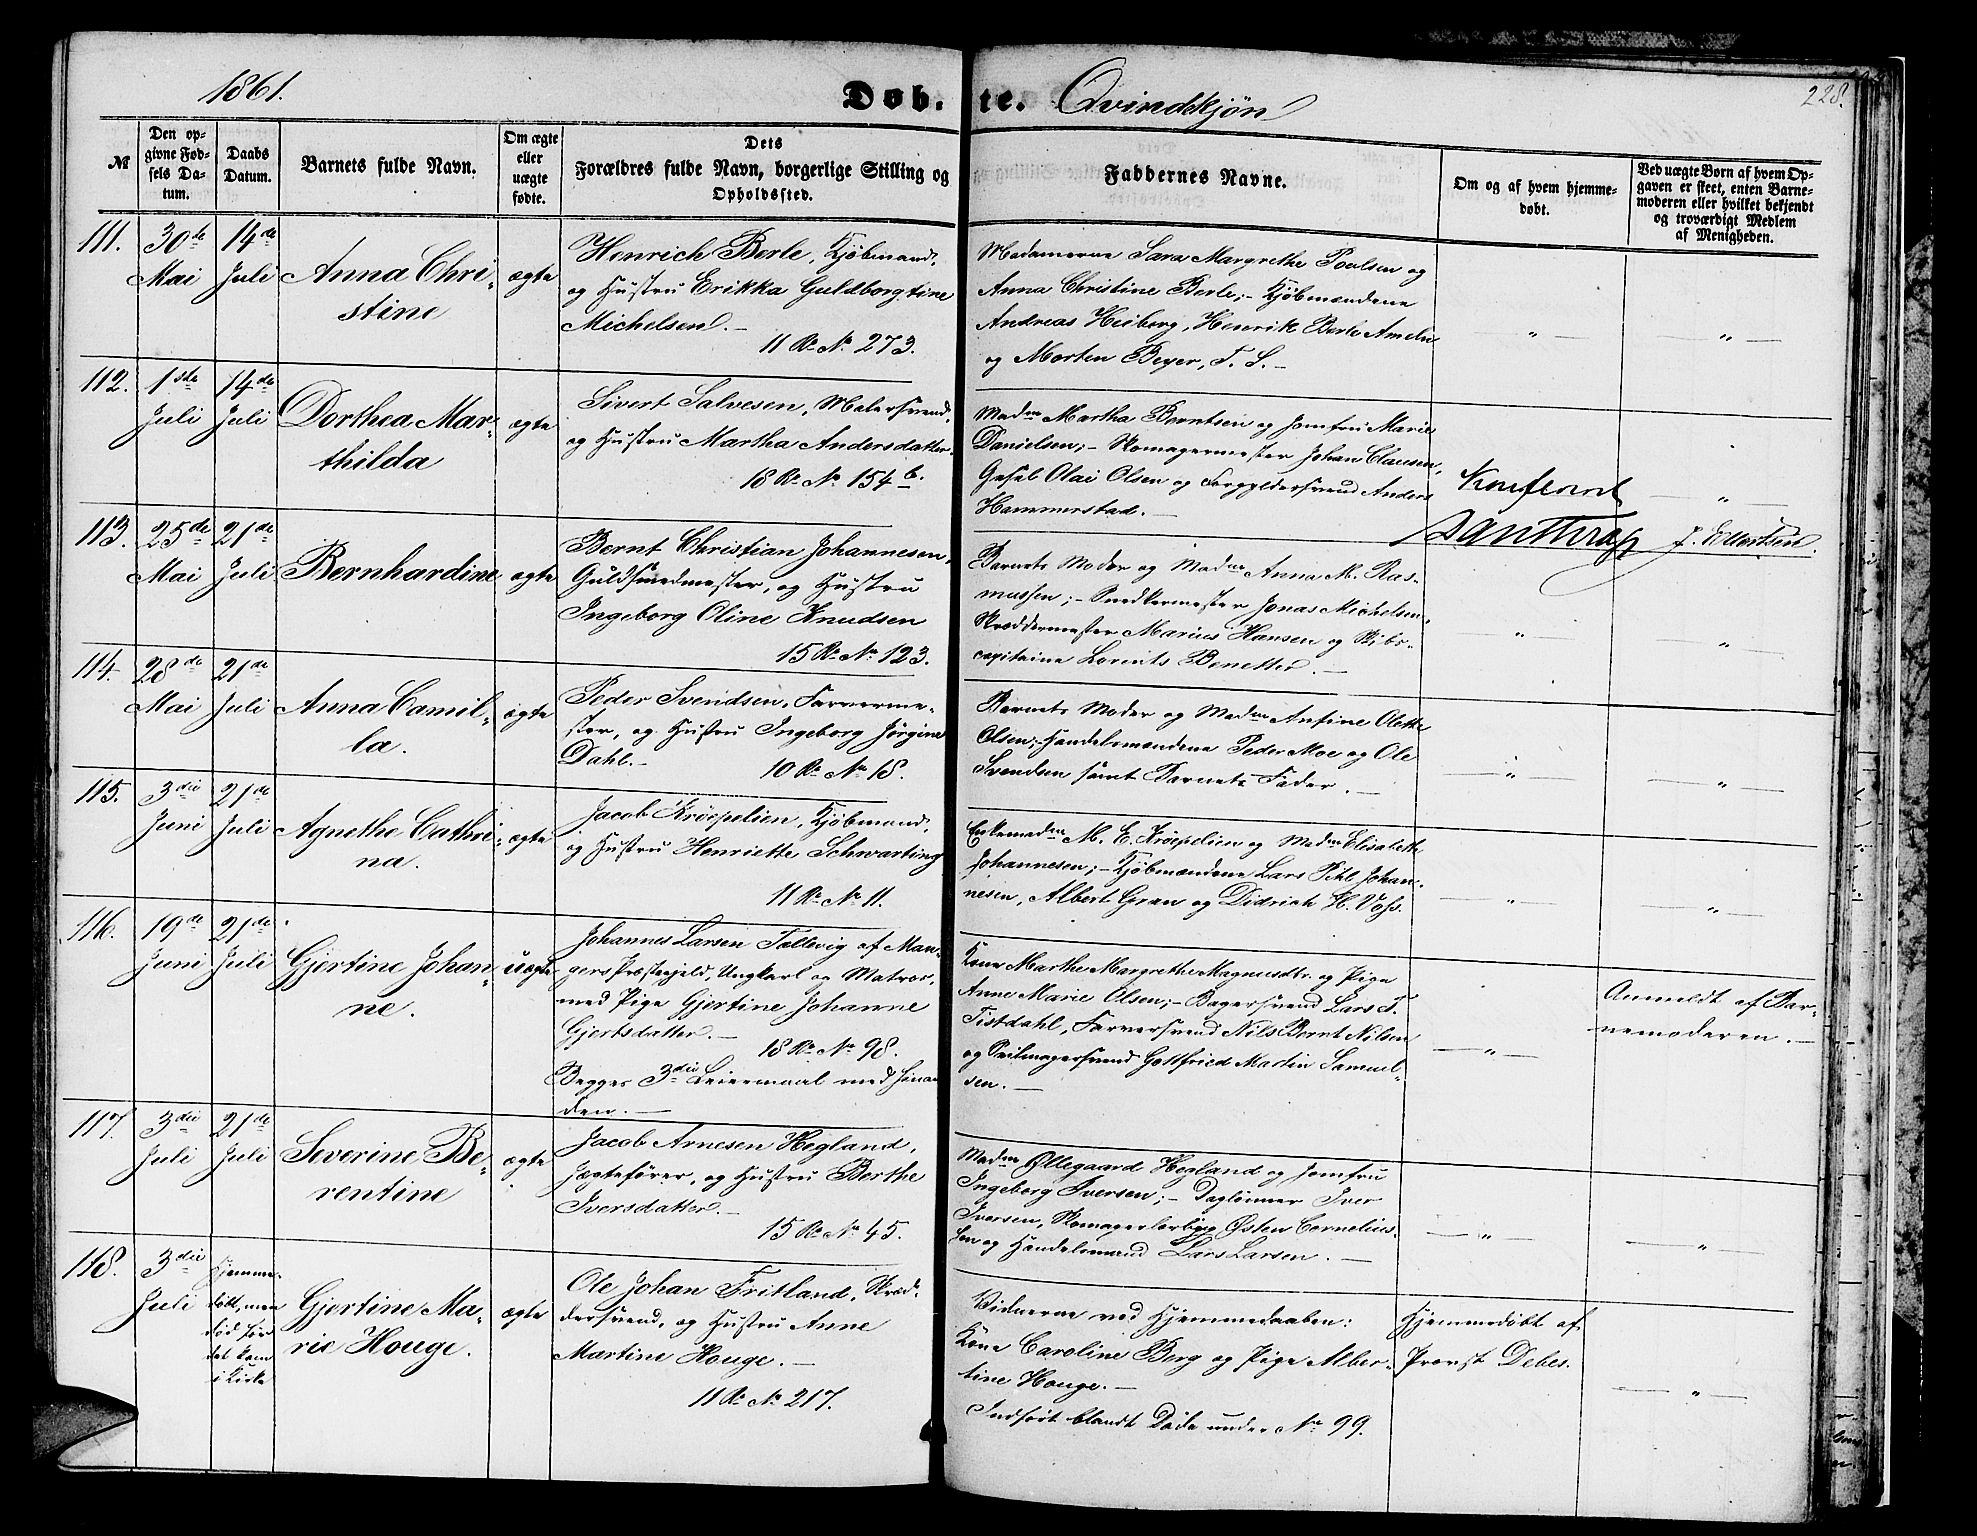 1861.
Døb.
te. Qvindekjøn
228.
№
Den op-
givne Fød-
sels Da-
tum.
Daabs
Datum.
Barnets fulde Navn.
Om ægte
eller
uægte
fødte.
Dets
Forældres fulde Navn, borgerlige Stilling og
Opholdssted.
Faddernes Navne.
Om og af hvem hjemme-
døbt.
Ved uægte Børn af hvem Op-
gaven er skeet, enten Barne-
moderen eller hvilket bekjendt
og troværdigt Medlem
af Menigheden.
111.
30te
Mai
14de
Juli
Anna Chri-
stine
ægte
Henrich Berle, Kjøbmand,
og Hustru Erikka Guldborgtine
Michelsen. —
11 R. № 273.
Madamerne Sara Margrethe Poulsen og
Anna Christine Berle; – Kjøbmændene
Andreas Heiberg, Henrik Berle Ameln
og Morten Beyer, T. S. —
— „ —
— „ —
112.
1ste
Juli
14de
Juli
Dorthea Mar-
thilda
ægte
Sivert Salvesen, Malersvend,
og Hustru Martha Andersdatter
18 R. № 154 b.
Madme Martha Berntsen og Jomfru Marie
Danielsen; – Skomagermester Johan Clausen,
Gesel Olai Olsen og Forgyldersvend Anders
Hammerstad. —
Konferert
— „ —
113.
25de
Mai
21de
Juli
Bernhardine
ægte
Bernt Christian Johannesen,
Guldsmedmester, og Hustru
Ingeborg Oline Knudsen
15 R. № 123.
Barnets Moder og Madme Anna M. Ras-
mussen; – Snedkermester Jonas Michelsen,
Skræddermester Marius Hansen og Skibs-
capitaine Lorents Benetter. —
„
— „ —
114.
28de
Mai
21de
Juli
Anna Camil-
la.
ægte
Peder Svendsen, Farverme-
ster, og Hustru Ingeborg Jørgine
Dahl. —
10 R. № 18.
Barnets Moder og Madme Anfine Olette
Olsen; – Handelsmændene Peder Moe og Ole
Svendsen samt Barnets Fader. —
— „ —
— „ —
115.
3die
Juni
21de
Juli
Agnethe Cathri-
na.
ægte
Jacob Krøepelien, Kjøbmand,
og Hustru Henriette Schwarting
11 R. № 11.
Enkemadme M. E. Krøepelien og Madme Elisabeth
Johannesen; – Kjøbmændene Lars Pihl Johan-
nesen, Albert Gran og Didrich H. Voss.
— „ —
— „ —
116.
19de
Juni
21de
Juli
Gjertine Johan-
ne.
uægte
Johannes Larsen Tællevig af Man-
gers Præstegjeld, Ungkarl og Matros,
med Pige Gjertine Johanne
Gjertsdatter. —
18 R. № 98.
Begges 3die Leiermaal med hinan-
den. —
Kone Marthe Margrethe Magnusdtr. og Pige
Anne Marie Olsen; – Bagersvend Lars T.
Tistdahl, Farversvend Nils Bernt Nilsen
og Seilmagersvend Gottfried Martin Samuel-
sen. —
— „ —
Anmeldt af Bar-
nemoderen. —
117.
3die
Juli
21de
Juli
Severine Be-
rentine
ægte
Jacob Arnesen Hegland,
Jægtefører, og Hustru Berthe
Iversdatter. —
15 R. № 45.
Madme Øllegaard Hegland og Jomfru
Ingeborg Iversen; – Daglønner Iver
Iversen, Skomagerlærling Østen Cornelius-
sen og Handelsmand Lars Larsen. —
— „ —
— „ —
118.
3die
Juli
Hjemme-
døbt, men
død før
det kom
i Kirke
Gjertine Ma-
rie Houge.
ægte
Ole Johan Fritland, Skræd-
dersvend, og Hustru Anne
Martine Houge. —
11 R. № 217.
Vidnerne ved Hjemmedaaben:
Kone Caroline Berg og Pige Alber-
tine Houge. —
Indført blandt Døde under № 99.
Hjemmedøbt af
Provst Debes.
— „ —